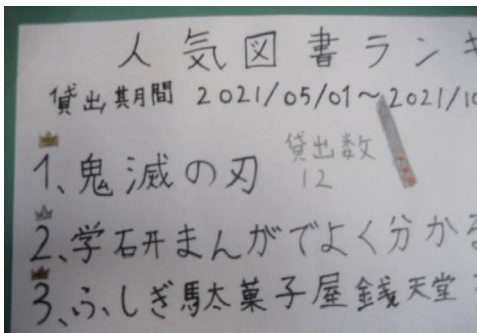 人気図書ランキ
貸出期間 2021/05/01～2021/10
1、鬼滅の刃 貸出数
12
2、学研まんがでよく分かる
3、ふしぎ駄菓子屋銭天堂